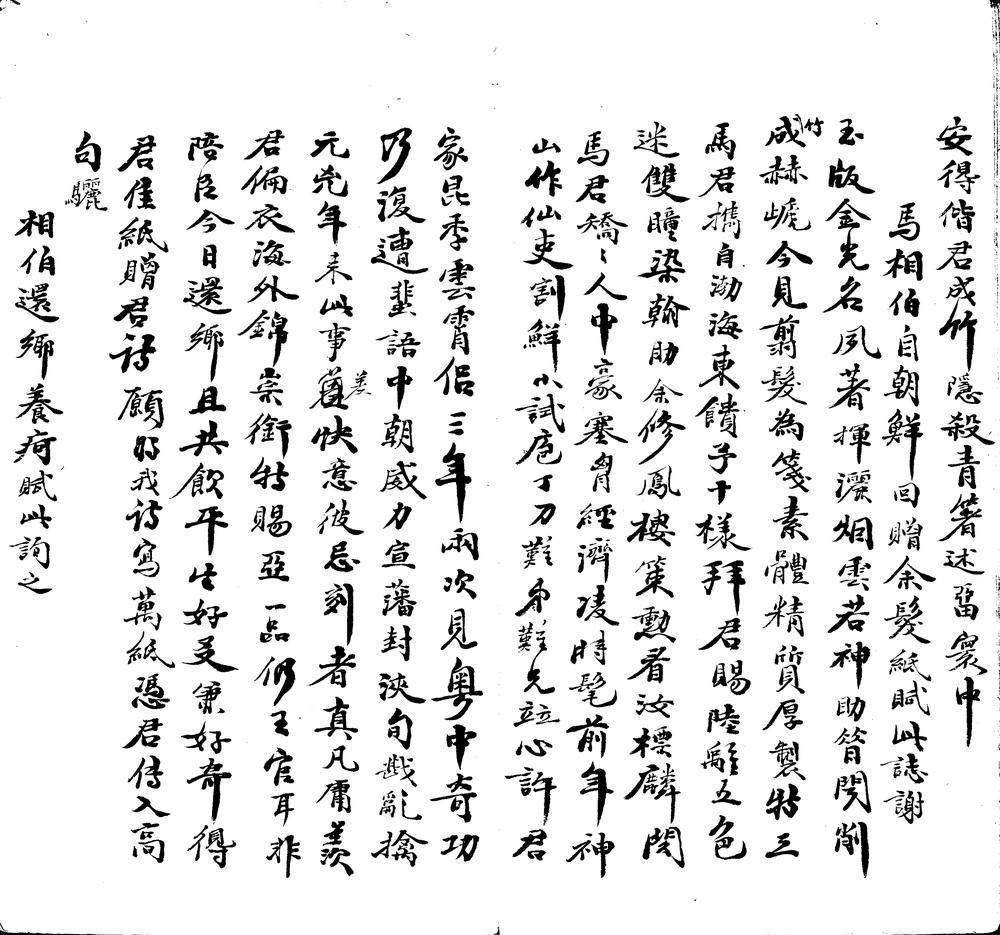 安得偕君成竹隱殺青著述富寰中
馬相伯自朝鮮回贈余髮紙賦此誌謝
玉版金光名夙著揮灑烟雲若神助昔閱削
竹成赫嗁今見翦髮為箋素體精質厚製特三
馬君攜自渤海東饋予十樣拜君賜陸離五色
迷雙瞳染翰助余修鳳樓策勳看汝標麟閣
馬君矯〻人中豪塞胷經濟凌時髦前年神
山作仙吏割鮮小試庖丁刀難弟難兄竝心許君
家昆季雲霄侶三年兩次見粵中奇功
乃復遭蜚語中朝威力宣藩封浹旬戡亂擒
元兇年來此事差快意彼忌刻者真凡庸羨
君偏衣海外錦崇銜特賜亞一品仍王官耳非
陪臣今日還鄉且共飲平生好友兼好奇得
君佳紙贈君詩願將我詩寫萬紙憑君傳入高
句驪
相伯還鄉養疴賦此詢之